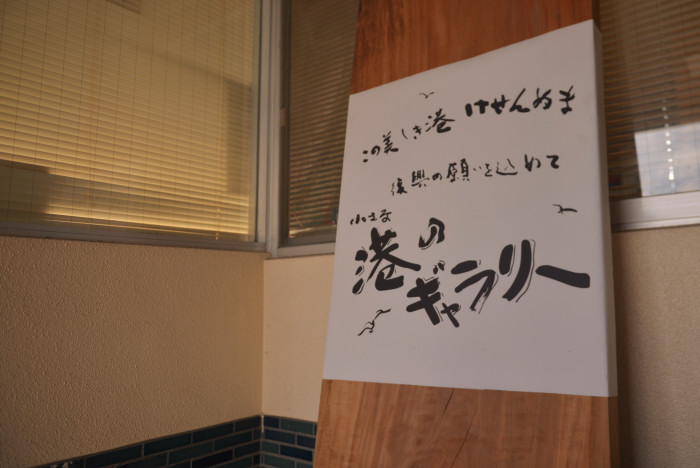 この美しき港 けせんぬま
復興の願いを込めて
小さな
港の
ギャラリー